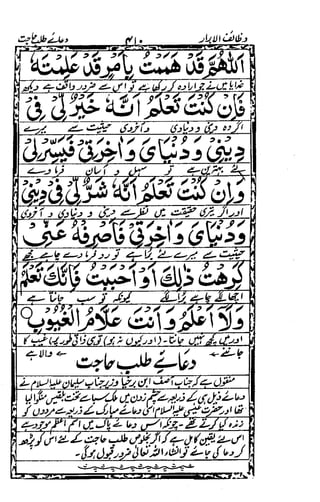 وظائف الابرار ۴۱۰ دعائے طلب حاجت
اَللّٰهُمَّ قَدْ هَمَمْتُ بِاَمْرٍ قَدْ عَلِمْتَهٗ
خدایا میں نے جو ارادہ کر رکھا ہے تو اس سے ضرور واقف ہے دیکھ
فَاِنْ كُنْتَ تَعْلَمُ اَنَّهٗ خَيْرٌ لِّیْ فِیْ
اگر وہ دینی و دنیاوی و اخروی حیثیت سے میرے
دِيْنِیْ وَ دُنْيَایَ وَ اٰخِرَتِیْ فَيَسِّرْهُ لِیْ
لئے بہترین ہے تو سہل و آسان فرما دے
وَ اِنْ كُنْتَ تَعْلَمُ اَنَّهٗ شَرٌّ لِّیْ فِیْ دِيْنِیْ
اور اگر تیری حقیقت میں نظر سے دینی و دنیاوی و اخروی
وَ دُنْيَایَ وَ اٰخِرَتِیْ فَاصْرِفْهُ عَنِّیْ
حیثیت سے میرے لئے برا ہے تو رد فرما دے چاہے مجھے
كَرِهْتُ ذٰلِكَ اَوْ اَحْبَبْتُ فَاِنَّكَ تَعْلَمُ
اچھا لگے چاہے برا لگے کیونکہ تو سب جانتا ہے
وَلَا اَعْلَمُ وَ اَنْتَ عَلَّامُ الْغُيُوْبِ
اور میں کچھ نہیں جانتا (اور کیوں نہ ہو) تو ہی ذاتی طور پر غیب کا
جاننے والا ہے
دعائے طلب حاجت
منقول ہے کہ جناب آصف ابن برخیا وزیر جناب سلیمان علیہ السلام نے
دعائے ذیل ہی کے ذریعہ سے چشم زدن میں ملک سبا سے تخت بلقیس منگوا لیا
تھا اور حضرت عیسیٰ علیہ السلام اسی دعائے مبارک کے ذریعہ سے مردوں کو
زندہ کیا کرتے تھے۔ چونکہ اس دعائے پاک میں اسم اعظم موجود ہے
اس لئے یقین کامل ہے کہ اگر بخلوص طلب حاجت کے لئے اس کو پڑھ
کر دعا کی جائے تو انشاء اللہ تعالیٰ ضرور قبول ہوگی۔